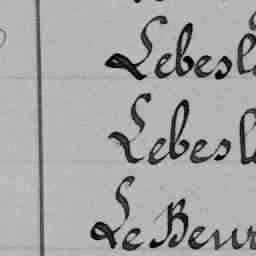 Lebesl
Lebesl
Le Beur